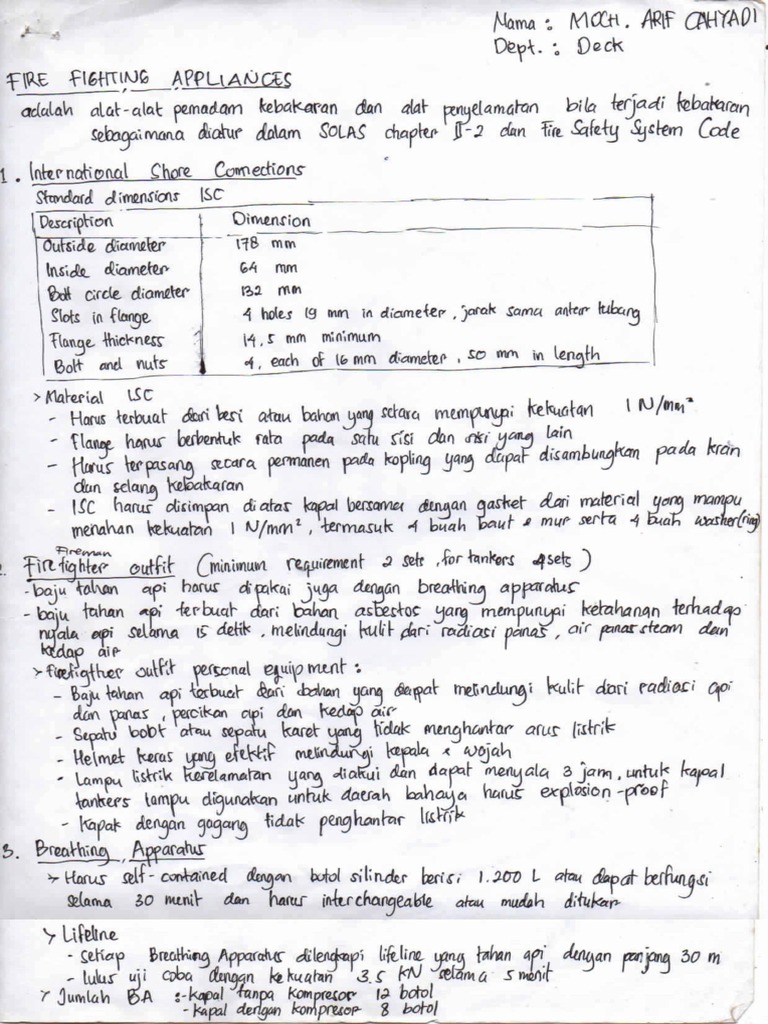 Nama : MOCH. ARIF CAHYADI
Dept. : Deck
FIRE FIGHTING APPLIANCES
adalah alat-alat pemadam kebakaran dan alat penyelamatan bila terjadi kebakaran
sebagaimana diatur dalam SOLAS chapter II-2 dan Fire Safety System Code
1. International Shore Connections
Standard dimensions ISC
Description Dimension
Outside diameter 178 mm
Inside diameter 64 mm
Bolt circle diameter 132 mm
Slots in flange 4 holes 19 mm in diameter, jarak sama antar lubang
Flange thickness 14,5 mm minimum
Bolt and nuts 4, each of 16 mm diameter, 50 mm in length
> Material ISC
- Harus terbuat dari besi atau bahan yang setara mempunyai kekuatan 1 N/mm²
- Flange harus berbentuk rata pada satu sisi dan sisi yang lain
- Harus terpasang secara permanen pada kopling yang dapat disambungkan pada kran
dan selang kebakaran
- ISC harus disimpan diatas kapal bersama dengan gasket dari material yang mampu
menahan kekuatan 1 N/mm², termasuk 4 buah baut & mur serta 4 buah washer (ring)
Fireman
2. Firefighter outfit (minimum requirement 2 sets, for tankers 4 sets)
- baju tahan api harus dipakai juga dengan breathing apparatus
- baju tahan api terbuat dari bahan asbestos yang mempunyai ketahanan terhadap
nyala api selama 15 detik, melindungi kulit dari radiasi panas, air panas steam dan
kedap air
> firefigther outfit personal equipment :
- Baju tahan api terbuat dari bahan yang dapat melindungi kulit dari radiasi api
dan panas, percikan api dan kedap air
- Sepatu bobt atau sepatu karet yang tidak menghantar arus listrik
- Helmet keras yang efektif melindungi kepala & wajah
- Lampu listrik keselamatan yang diakui dan dapat menyala 3 jam, untuk kapal
tankers lampu digunakan untuk daerah bahaya harus explosion-proof
- Kapak dengan gagang tidak penghantar listrik
3. Breathing Apparatus
> Harus self-contained dengan botol silinder berisi 1.200 L atau dapat berfungsi
selama 30 menit dan harus interchangeable atau mudah ditukar
> Lifeline
- setiap Breathing Apparatus dilengkapi lifeline yang tahan api dengan panjang 30 m
- lulus uji coba dengan kekuatan 3.5 KN selama 5 menit
> Jumlah BA : - kapal tanpa kompresor 12 botol
- kapal dengan kompresor 8 botol